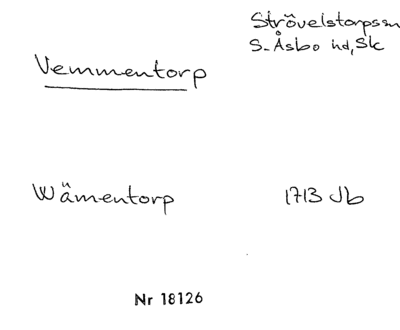 Strövelstorpssn
S. Åsbo hd, Sk
Vemmentorp
Wämentorp 1713 Jb
Nr 18126